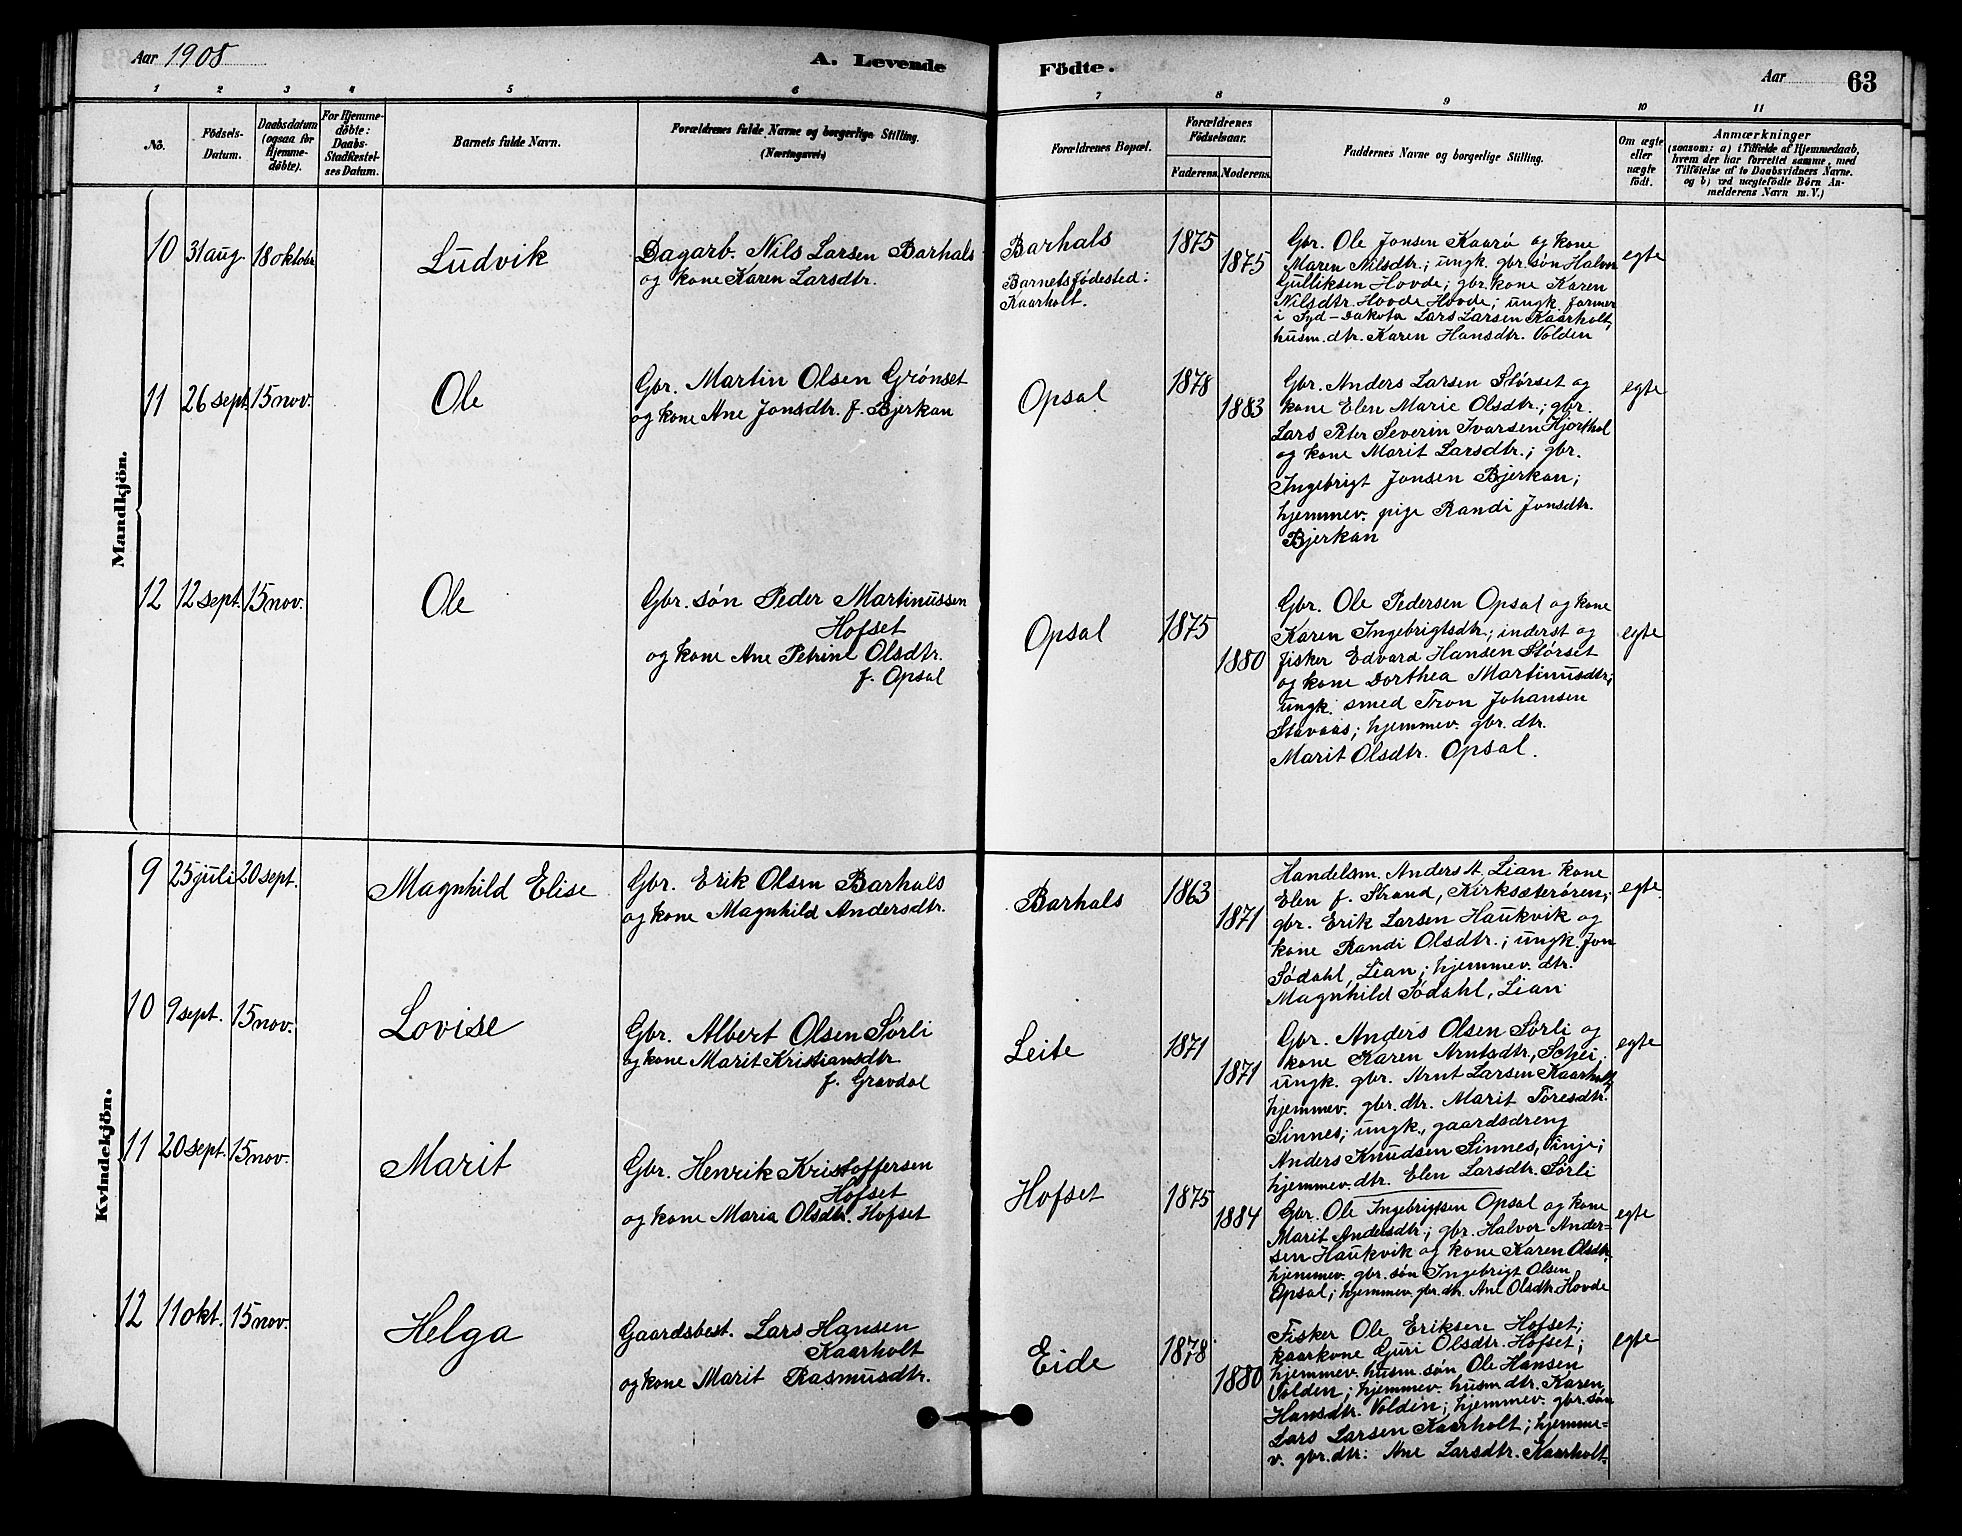 Aar 1908
A. Levende
Födte.
Aar
63
1 2 3 4 5 6 7 8 9 10 11
Nô.
Födsels-
Datum.
Daabsdatum
(ogsaa for
Hjemme-
döbte).
For Hjemme-
döbte:
Daabs-
Stadfæstel-
ses Datum.
Barnets fulde Navn.
Forældrenes fulde Navne og borgerlige Stilling.
(Næringsvei.)
Forældrenes Bopæl.
Forældrenes
Födselsaar.
Faderens. Moderens.
Faddernes Navne og borgerlige Stilling.
Om ægte
eller
uægte
födt.
Anmærkninger
(saasom: a) i Tilfælde af Hjemmedaab,
hvem der har forrettet samme, med
Tilföielse af to Daabsvidners Navne.
og b) ved uægtefödte Börn An-
melderens Navn m. V.)
Mandkjön.
10 31 aug. 18 oktobr.
Ludvik
Dagarb. Nils Larsen Barhals
og kone Karen Larsdtr.
Barhals
Barnets fødested:
Kaarholt.
1875
1875
Gbr. Ole Jonsen Kaarø og kone
Maren Nilsdtr.; ungk. gbr. søn Halvor
Gulliksen Hovde; gbr. kone Karen
Nilsdtr. Hovde Hovde; ungk. farmer
i Syd-Dakota Lars Larsen Kaarholt,
husm. dtr. Karen Hansdtr. Volden
egte
11 26 sept. 15 nov.
Ole
Gbr. Martin Olsen Grønset
og kone Ane Jonsdtr. f. Bjerkan
Opsal
1878
1883
Gbr. Anders Larsen Størset og
kone Elen Marie Olsdtr.; gbr.
Lars Peter Severin Ivarsen Hjorthol
og kone Marit Larsdtr.; gbr.
Ingebrigt Jonsen Bjerkan;
hjemmev. pige Randi Jonsdtr.
Bjerkan
egte
12 12 sept. 15 nov.
Ole
Gbr. søn Peder Martinussen
Hofset
og kone Ane Petrine Olsdtr.
f. Opsal
Opsal
1875
1880
Gbr. Ole Pedersen Opsal og kone
Karen Ingebrigtsdtr.; inderst og
fisker Edvard Hansen Størset
og kone Dorthea Martinusdtr.;
ungk. smed Tron Johansen
Stavaas; hjemmev. gbr. dtr.
Marit Olsdtr. Opsal.
egte
Kvindekjön.
9 25 juli 20 sept.
Magnhild Elise
Gbr. Erik Olsen Barhals
og kone Magnhild Andersdtr.
Barhals
1863
1871
Handelsm. Anders A. Lian kone
Elen f. Strand, Kirksæterøren;
gbr. Erik Larsen Haukvik og
kone Randi Olsdtr.; ungk. Jon
Sødahl, Lian; hjemmev. dtr.
Magnhild Sødahl, Lian
egte.
10 9 sept. 15 nov.
Lovise
Gbr. Albert Olsen Sørli
og kone Marit Kristiansdtr.
f. Gravdal
Leite
1871
1871
Gbr. Anders Olsen Sørli og
kone Karen Arntsdtr., Schei;
ungk. gbr. Arnt Larsen Kaarholt,
hjemmev. gbr. dtr. Marit Toresdtr.
Sinnes; ungk., gaardsdreng
Anders Knudsen Sinnes, Vinje;
hjemmev. dtr. Elen Larsdtr. Sørli
egte
11 20 sept. 15 nov.
Marit
Gbr. Henrik Kristoffersen
Hofset
og kone Maria Olsdtr. Hofset
Hofset
1875
1884
Gbr. Ole Ingebrigtsen Opsal og kone
Marit Andersdtr.; gbr. Halvor Ander-
sen Haukvik og kone Karen Olsdtr.
hjemmev. gbr. søn Ingebrigt Olsen
Opsal; hjemmev. gbr. dtr. Ane Olsdtr. Hovde
egte
12 11 okt. 15 nov.
Helga
Gaardsbest. Lars Hansen
Kaarholt
og kone Marit Rasmusdtr.
Eide
1878
1880
Fisker Ole Eriksen Hofset;
kaarkone Guri Olsdtr. Hofset;
hjemmev. husm. søn Ole Hansen
Volden; hjemmev. husm. dtr. Karen
Hansdtr. Volden; hjemmev. gbr. søn
Lars Larsen Kaarholt; hjemme-
v. gbr. dtr. Ane Larsdtr. Kaarholt.
egte